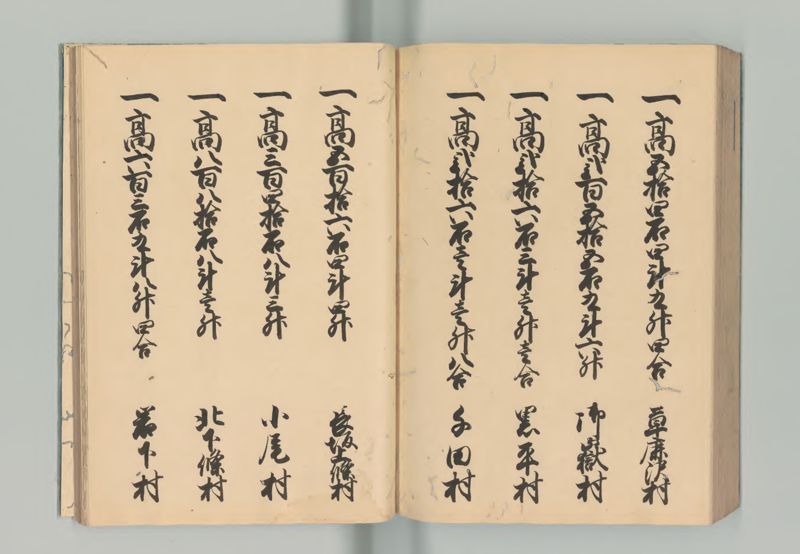 一高五拾四石四斗九升四合　草鹿沢村
一高弐百五拾五石九斗六升　御嶽村
一高弐拾六石三斗壱升壱合　黒平村
一高弐拾六石壱斗壱升八合　千田村
一高五百拾六石四斗四升　長坂上條村
一高三百四拾石八斗三升　小尾村
一高八百八拾石八斗壱升　北下條村
一高六百三石九斗八升四合　岩下村